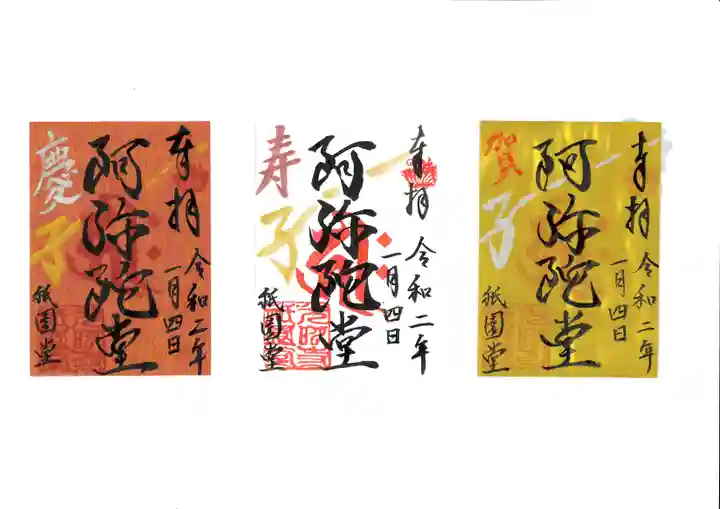 奉拝
令和二年
一月四日
阿弥陀堂
慶
子
祇園堂
奉拝
令和二年
一月四日
阿弥陀堂
寿
子
祇園堂
奉拝
令和二年
一月四日
阿弥陀堂
賀
子
祇園堂